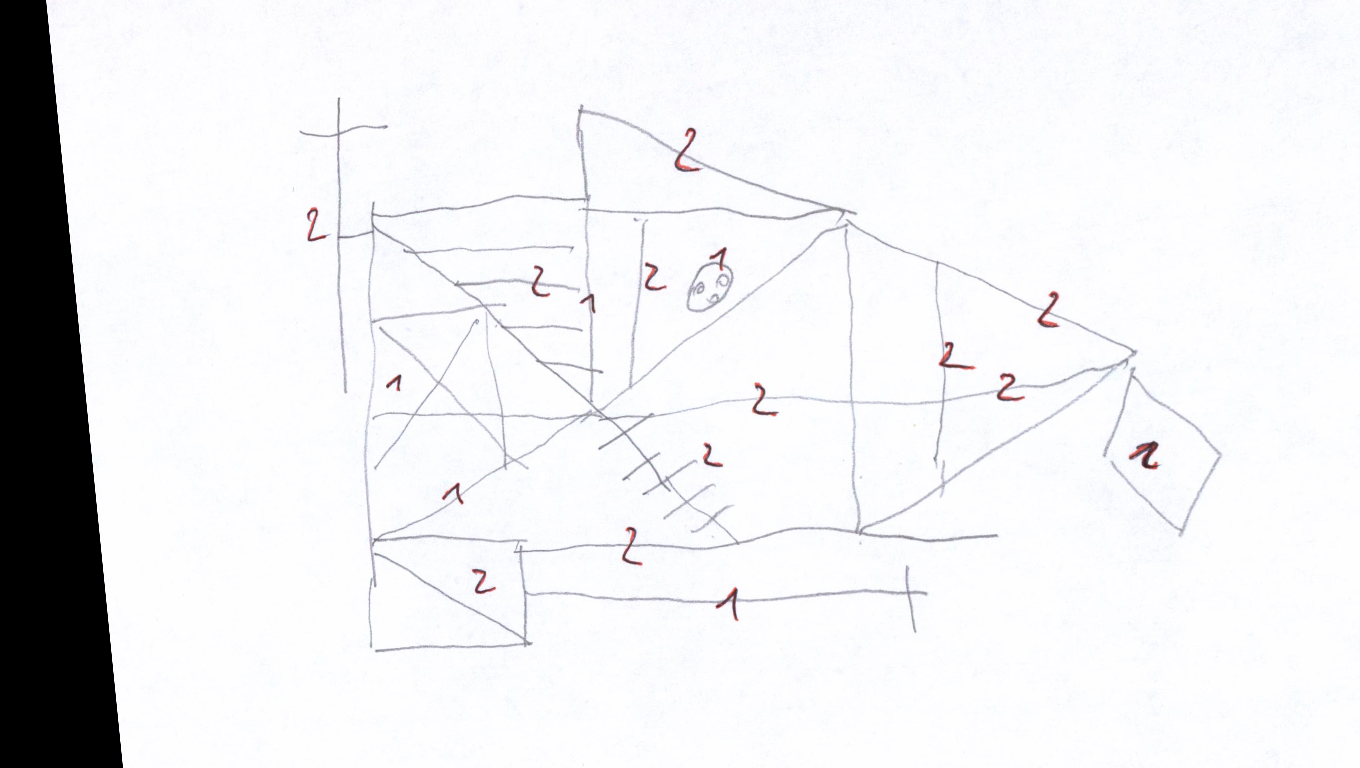 2
2
2
1
2
1
2
1
2
2
2
2
2
1
2
2
1